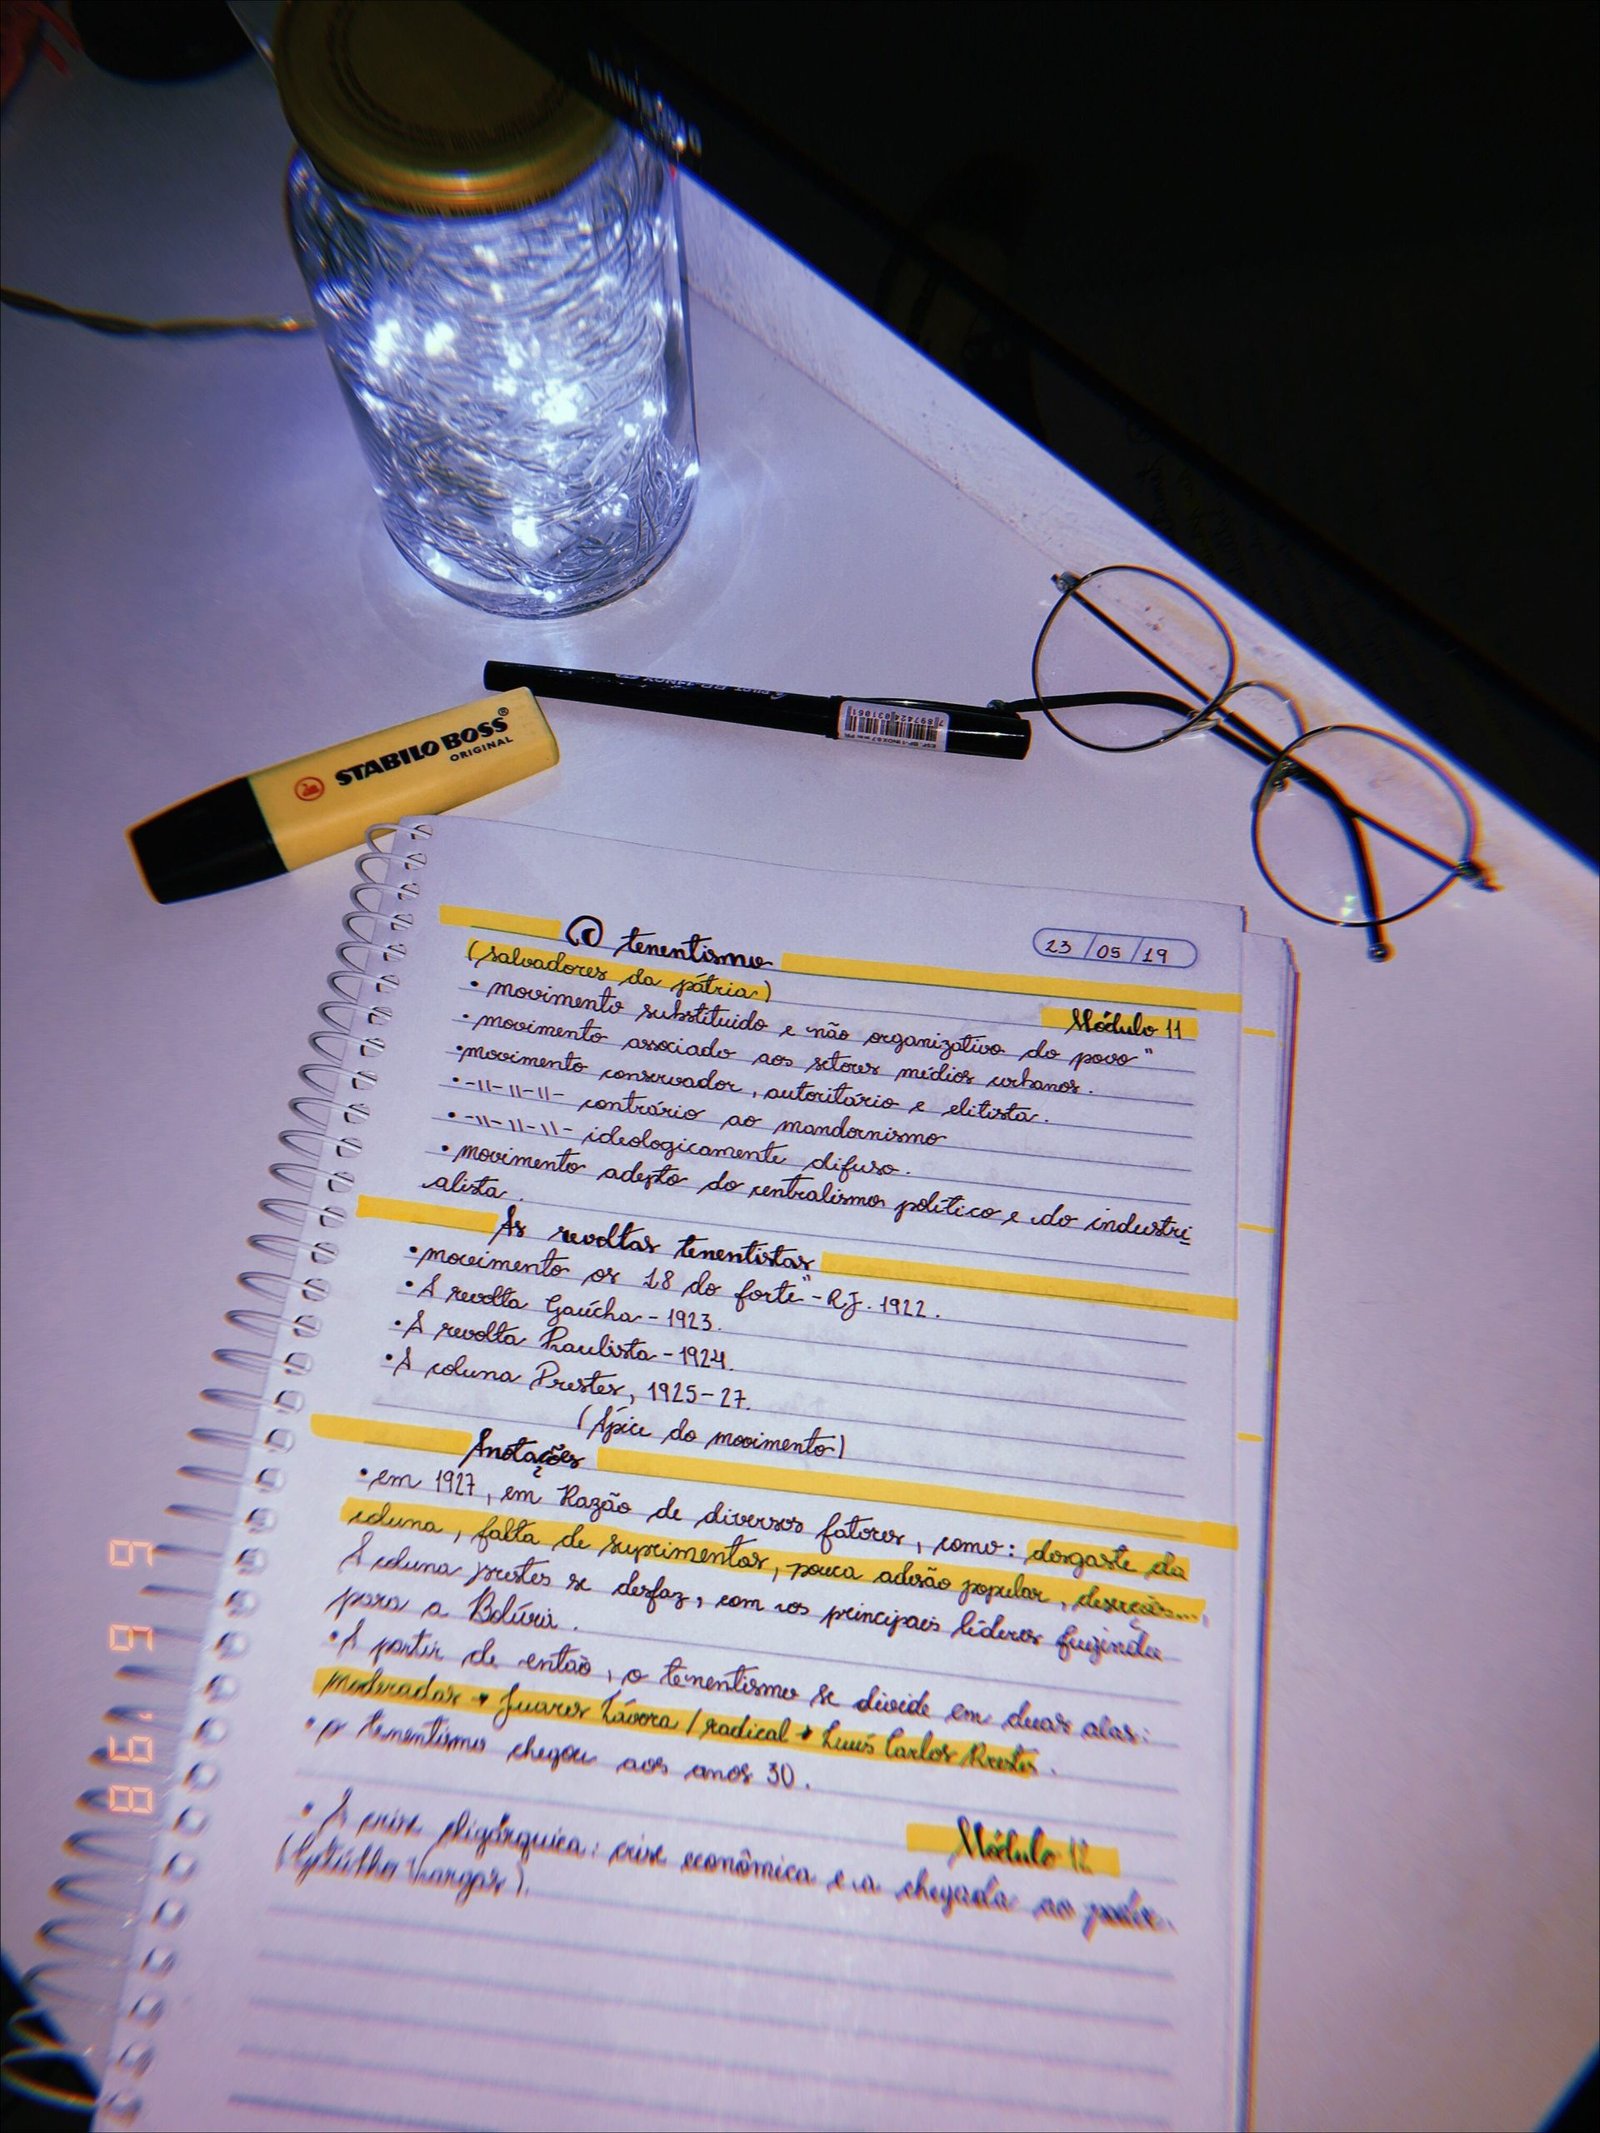 STABILO BOSS®
ORIGINAL
7897424031061
O tenentismo
23/05/19
(salvadores da pátria)
Módulo 11
• movimento substituido e não organizativo do povo"
• movimento associado aos setores médios urbanos.
• movimento conservador, autoritário e elitista.
• -11-11-11- contrário ao mandonismo
• -11-11-11- ideologicamente difuso.
• movimento adepto do centralismo político e do industri
alista.
As revoltas tenentistas
• movimento os 18 do forte" - RJ. 1922.
• A revolta Gaúcha - 1923.
• A revolta Paulista - 1924.
• A coluna Prestes, 1925-27.
(Ápice do movimento)
Anotações
• em 1927, em Razão de diversos fatores, como: desgaste da
coluna, falta de suprimentos, pouca adesão popular,
A coluna prestes se desfaz, com os principais líderes fugindo
para a Bolívia.
• A partir de entaõ, o tenentismo se divide em duas alas:
moderados → Juares Távora / radical → Luís Carlos Prestes.
• o tenentismo chegou aos anos 30.
Módulo 12
• A crise oligárquica: crise econômica e a chegada ao poder.
(Getúlho Vargas).
6 6 '98